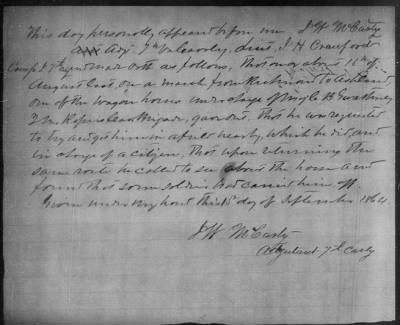 This day personally appeared before me J W McCarty
Adj 7th Va Cavalry, Lieut. J H Crawford
Comp I 7th and made oath as follows, That on or about 11th of
August last, on a march from Richmond to
one of the wagon horses under charge of B Gwathmey
Q M Brigade, gave out, That he was requested
to try and get him in a field nearby, which he did, and
in charge of a citizen, That upon returning the
same route he called to see about the horse and
found that some soldier had carried him off.
Given under my hand this day of September 1864.
J W McCarty
Adjutant 7th Cavly